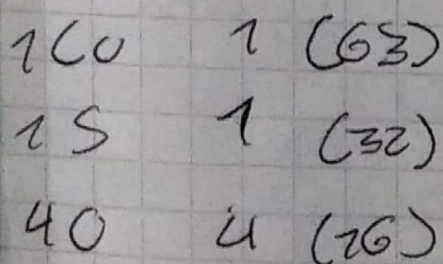 1CO 1 (63)
1S 1 (32)
4O 4 (16)